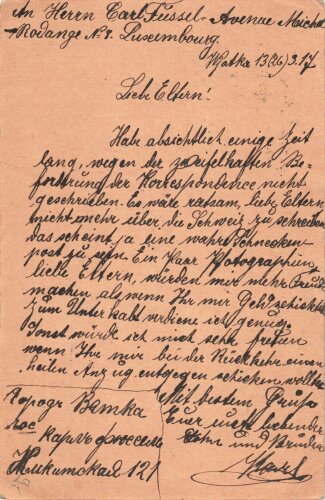 An Herrn Carl Fussel - Avenue Michel
Rodange No 8. Luxembourg.
Wjatka 13(26) 9.17
Liebe Eltern!
Habe absichtlich einige Zeit
lang, wegen der zweifelhaften Be-
förderung der Korrespondence nicht
geschrieben. Es wäre ratsam, liebe Eltern
nicht mehr über die Schweiz zu schreiben
das scheint ja eine wahre Schnecken-
post zu sein. Ein Paar Photographien,
liebe Eltern, würden mir mehr Freude
machen als wenn Ihr mir Geld schicktet
zum Unterhalt verdiene ich genug.
Sonst würde ich mich sehr freuen
wenn Ihr mir bei der Rückkehr einen
heilen Anzug entgegen schicken wolltet
Mit besten Gruss
Euer euch liebender
Sohn und Bruder
Карлъ
Никитская 121